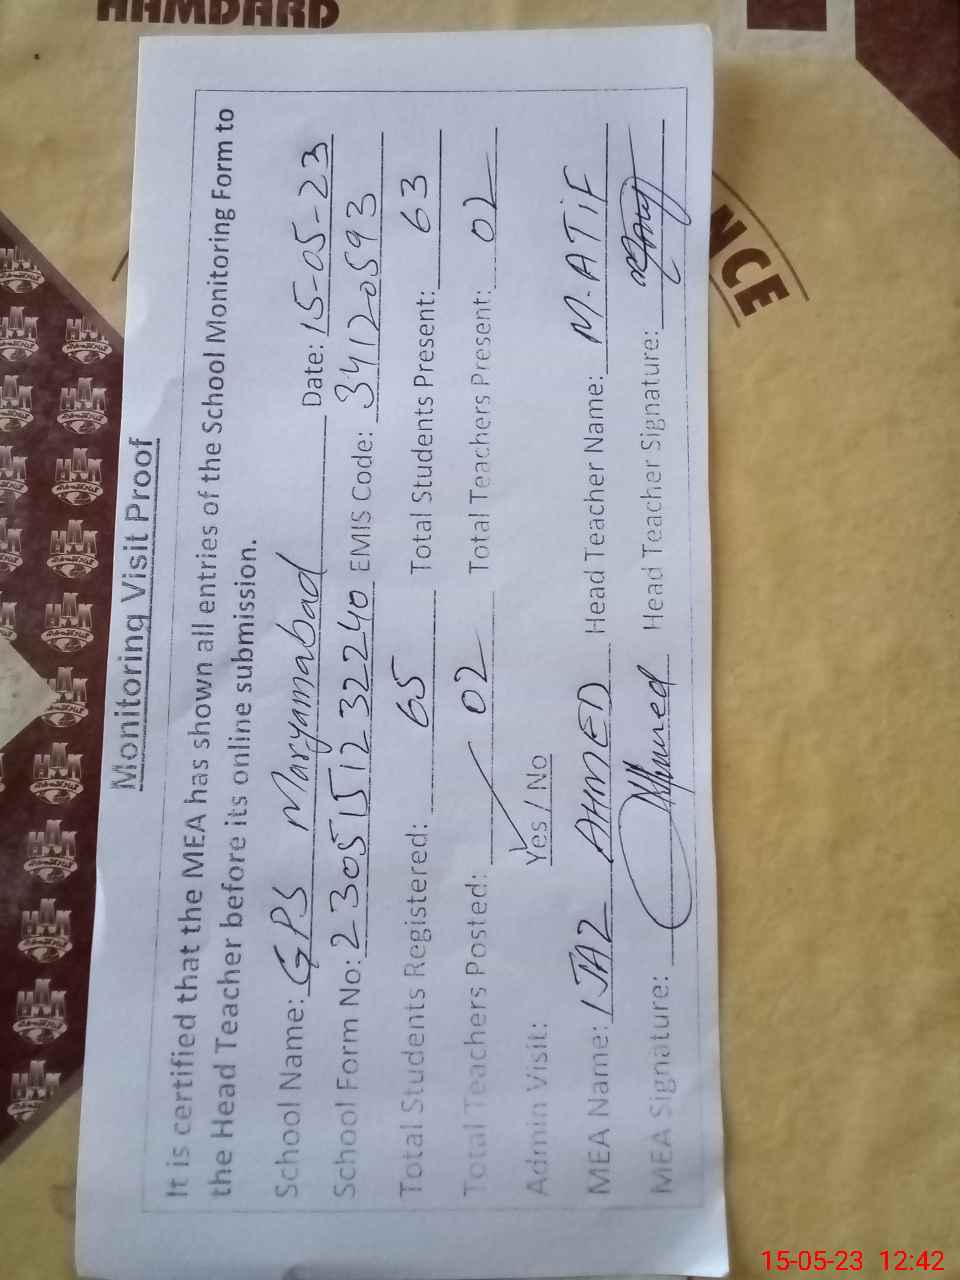 HAMDARD
Monitoring Visit Proof
It is certified that the MEA has shown all entries of the School Monitoring Form to
the Head Teacher before its online submission.
School Name: GPS Maryamabad Date: 15-05-23
School Form No: 230515123224 0 EMIS Code: 34120593
Total Students Registered: 65 Total Students Present: 63
Total Teachers Posted: 02 Total Teachers Present: 02
Admin Visit: Yes / No
MEA Name: IJAZ AHMED Head Teacher Name: M. ATiF
MEA Signature: Ahmed Head Teacher Signature:
NCE
15-05-23 12:42